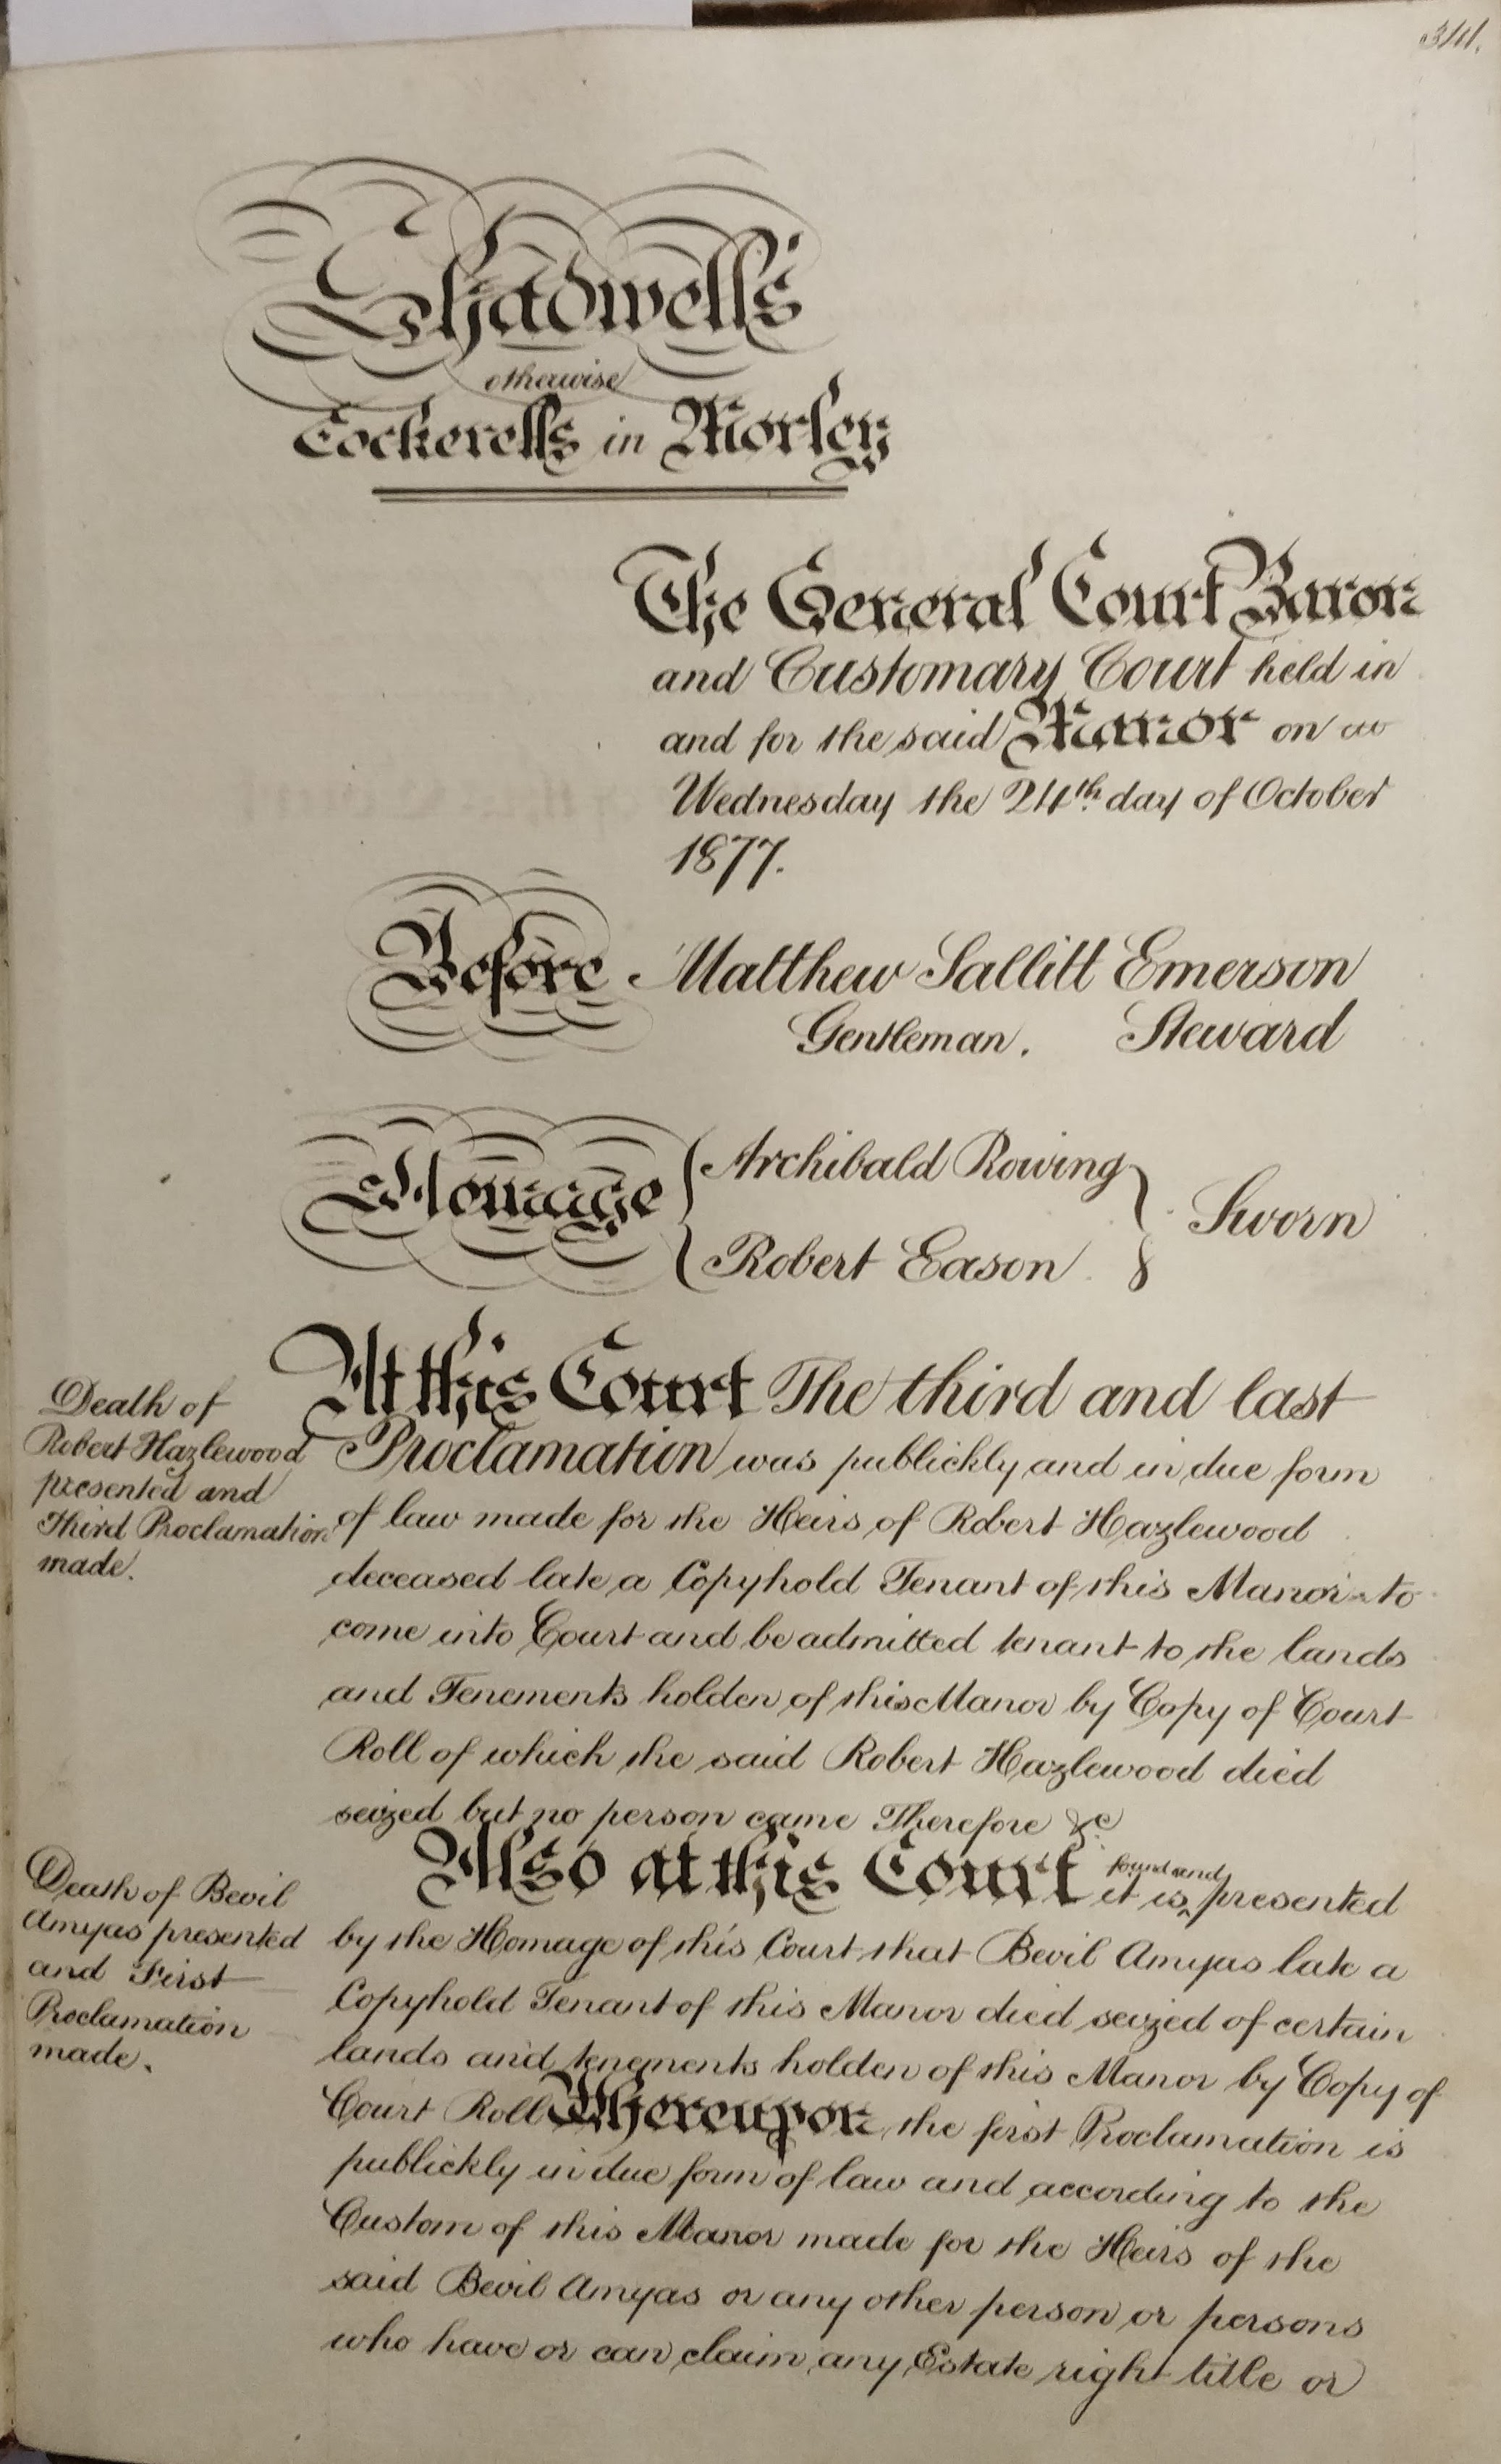 Shadwell's
otherwise
Cockerells in Morley
The General Court Baron
and Customary Court held in
and for the said Manor on
Wednesday the 24th day of October
1877.
Before Matthew Sallitt Emerson
Gentleman. Steward
Homage { Archibald Rowing
Robert Eason } Sworn
At this Court The third and last
Proclamation was publickly and in due form
of law made for the Heirs of Robert Hazlewood
deceased late a Copyhold Tenant of this Manor to
come into Court and be admitted tenant to the lands
and Tenements holden of this Manor by Copy of Court
Roll of which the said Robert Hazlewood died
seized but no person came Therefore &c
Death of
Robert Hazlewood
presented and
Third Proclamation
made.
Also at this Court it is ^found and presented
by the Homage of this Court that Bevil Amyas late a
Copyhold Tenant of this Manor died seized of certain
lands and tenements holden of this Manor by Copy of
Court Roll Whereupon the first Proclamation is
publickly in due form of law and according to the
Custom of this Manor made for the Heirs of the
said Bevil Amyas or any other person or persons
who have or can claim any Estate right title or
Death of Bevil
Amyas presented
and First
Proclamation
made.